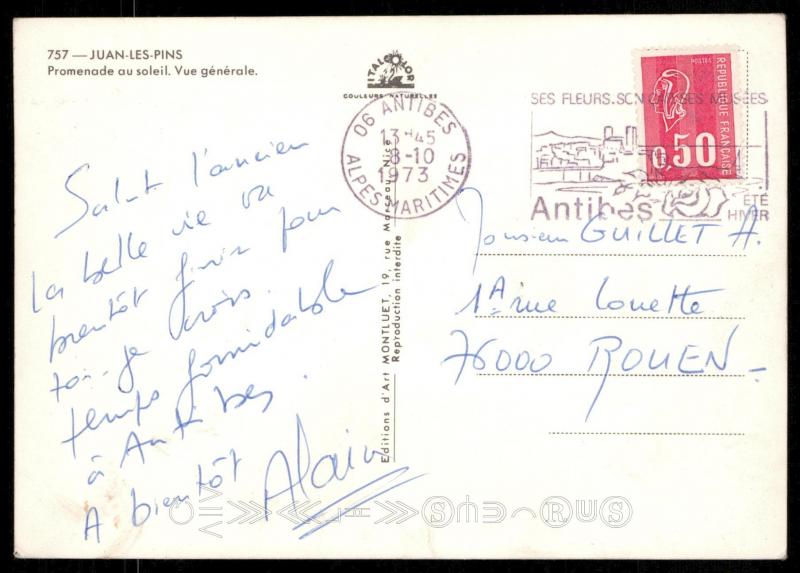 757 — JUAN-LES-PINS
Promenade au soleil. Vue générale.
ITALCOLOR
COULEURS NATURELLES
06 ANTIBES
13 H45
8-10
1973
ALPES MARITIMES
SES FLEURS. SON SES MUSÉES
Antibes
ÉTÉ
HIVER
POSTES
RÉPUBLIQUE FRANÇAISE
0,50
Salut l'ancien
la belle vie va
bientôt finir pour
toi-je crois.
temps formidable
à Antibes.
A bientôt
Alain
Editions d'Art MONTLUET, 19, rue Marceau, Nice
Reproduction interdite
Monsieur GUILLET A.
1A rue Louette
76000 ROUEN -